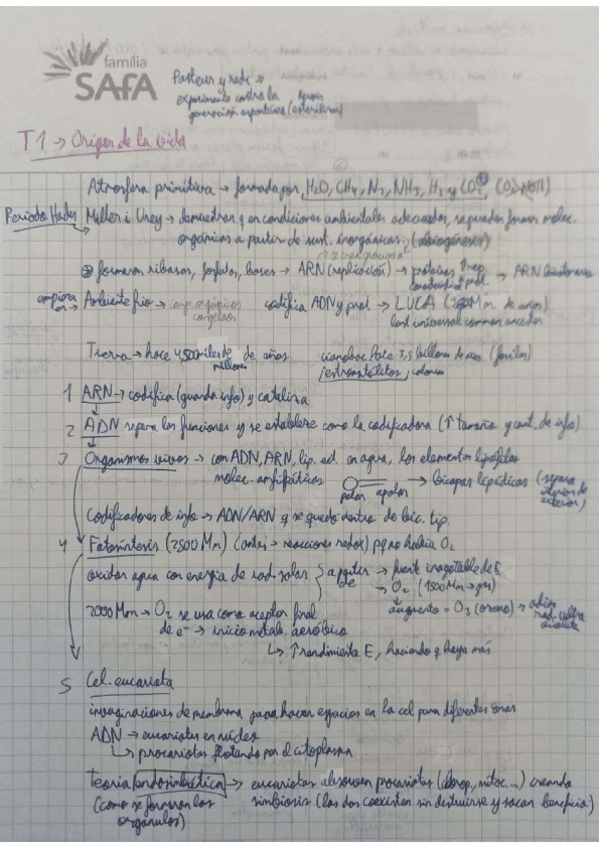 família
SAFA
Pasteur y redi →
experimento contra la
generación espontánea (esterilizan)
T1 → Origen de la vida
Atmosfera primitiva → formada por H2O, CH4, N2, NH3, H2 y CO2
Periodo Hades Miller i Urey → demuestran q en condiciones ambientales adecuadas, se pueden formar molec.
orgánicas a partir de sust. inorgánicas, (abiogénesis)
formaron ribosas, fosfatos, bases → ARN (replicación) → proteínas → ARN
Ambiente frio → comp. orgánicos congelaos
codifica ADN y prot → LUCA
last universal common ancestor
Tierra → hace 4,500 miles de millones de años
hace 3,5 billones de años (fósiles)
estromatólitos, colonias
1 ARN → codifica (guarda info) y cataliza
2 ADN separa las funciones y se establece como la codificadora (↑ tamaño y cant. de info)
3 Organismos vivos → con ADN, ARN, lip. ed. en agua, los elementos lipofilos
molec. anfipáticas
polar apolar → bicapas lipídicas (separa interior de exterior)
Codificadores de info → ADN/ARN q se quedó dentro de bic. lip.
4 Fotosíntesis (2500 Mm) (antes → reacciones redox) pq no había O2
oxidar agua con energía de rad solar } a partir de → fuente inagotable de E
→ O2 (1500 Mm → gas)
aumento → O3 (ozono) →
2000 Mm → O2 se usa como aceptor final
de e- → inicio metab. aeróbico
↳ ↑ rendimiento E, haciendo q haya más
5 Cel. eucariota
invaginaciones de membrana para hacer espacios en la cel para diferentes zonas
ADN → eucariotas en núcleo
↳ procariotas flotando por el citoplasma
Teoría endosimbiótica → eucariotas absorven procariotas (clorop., mitoc...) creando
(como se formaron los orgánulos)
simbiosis (las dos coexisten sin destruirse y sacan beneficio)